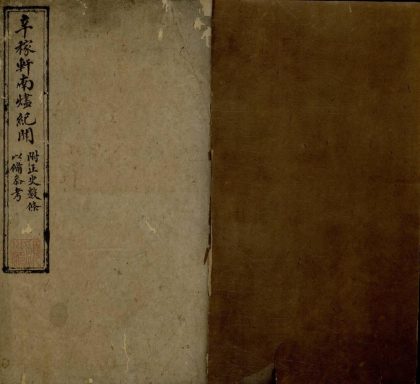 辛稼軒南燼紀聞
附正史數條
以備參考